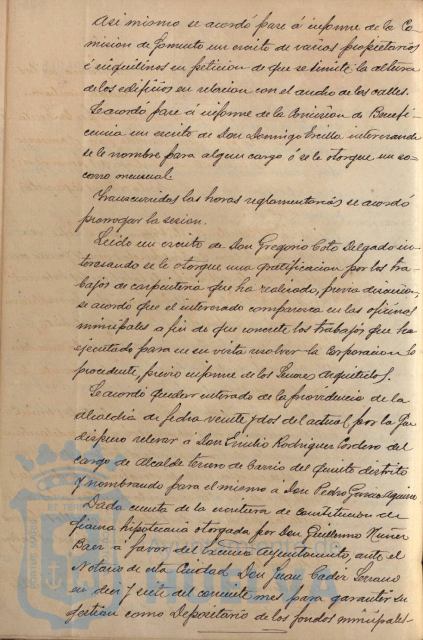 Asi mismo se acordó pase á informe de la Co-
mision de Fomento un escrito de varios propietarios
é inquilinos en peticion de que se limite la altura
de los edificios en relacion con el ancho de las calles.
Se acordó pase á informe de la Comision de Benefi-
cencia un escrito de Don Domingo Ercilla interesando
se le nombre para algun cargo ó se le otorgue un so-
corro mensual.
Transcurridas las horas reglamentarias se acordó
prorrogar la sesion.
Leido un escrito de Don Gregorio Coto Delgado in-
teresando se le otorgue una gratificacion por los tra-
bajos de carpinteria que ha realizado, previa discusion,
se acordó que el interesado comparezca en las oficinas
municipales a fin de que concrete los trabajos que ha
ejecutado para en su vista resolver la Corporacion lo
procedente, previo informe de los Senores Arquitectos.
Se acordó quedar enterado de la providencia de la
Alcaldia de fecha veinte y dos del actual por la que
dispuso relevar a Don Emilio Rodriguez Cordero del
cargo de Alcalde de barrio del quinto distrito
y nombrando para el mismo á Don Pedro Garcia
Dada cuenta de la escritura de constitucion de
fianza hipotecaria otorgada por Don Guillermo Nuñez
a favor del Excmo Ayuntamiento, ante el
Notario de esta Ciudad Don Juan Serrano
en diez y siete del corriente mes para garantir su
gestion como Depositario de los fondos municipales